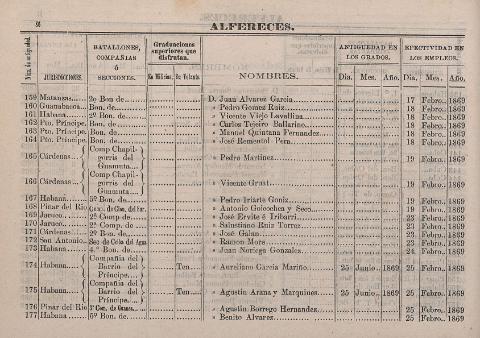 86
ALFERECES.
Núm. de antigüedad.
JURISDICCIONES.
BATALLONES, COMPAÑIAS ó SECCIONES.
Graduaciones superiores que disfrutan.
En Milicias. De Volunts.
NOMBRES.
ANTIGUEDAD EN LOS GRADOS.
Dia. Mes. Año.
EFECTIVIDAD EN LOS EMPLEOS.
Dia. Mes. Año.
159 Matanzas... 2º Bon. de... D. Juan Alvarez Garcia 17 Febro.. 1869
160 Guanabacoa. Bon. de... » Pedro Gomez Ruiz 18 Febro.. 1869
161 Habana... 2º Bon. de... » Vicente Viejo Lavallina 18 Febro.. 1869
162 Pto. Príncipe. Bon. de... » Carlos Tejeiro Ballarino 18 Febro.. 1869
163 Pto. Príncipe. Bon. de... » Manuel Quintana Fernandez 18 Febro.. 1869
164 Pto. Príncipe. Bon. de... » José Rementol Pern 18 Febro.. 1869
165 Cárdenas... Comp Chapilgorris del Guamuta... » Pedro Martinez 19 Febro.. 1869
166 Cárdenas... Comp Chapilgorris del Guamuta... » Vicente Graut 19 Febro.. 1869
167 Habana... 5º Bon. de... » Pedro Iriarte Goniz 19 Febro.. 1869
168 Pinar del Rio » Antonio Gorochea y Seco 19 Febro.. 1869
169 Jaruco... 2ª Comp de... » José Ervite é Iribarri 23 Febro.. 1869
170 Jaruco... 2ª Comp. de... » Salustiano Ruiz Torrez 23 Febro.. 1869
171 Cárdenas... 2º Bon. de... » José Galan 23 Febro.. 1869
172 San Antonio.. Sec de Ceiba del Agua » Ramon More 23 Febro.. 1869
173 Habana... 4.º Bon. de... » Juan Noriega Gonzalez 24 Febro.. 1869
174 Habana... Compañia del Barrio del Príncipe.... Ten... » Aureliano Garcia Mariño.. 25 Junio.. 1869 25 Febro.. 1869
175 Habana... Compañia del Barrio del Príncipe.... Ten... » Agustin Arana y Marquines. 25 Junio.. 1869 25 Febro.. 1869
176 Pinar del Rio » Agustin Borrego Hernandez 25 Febro.. 1869
177 Habana... 5º Bon. de... » Benito Alvarez 25 Febro.. 1869